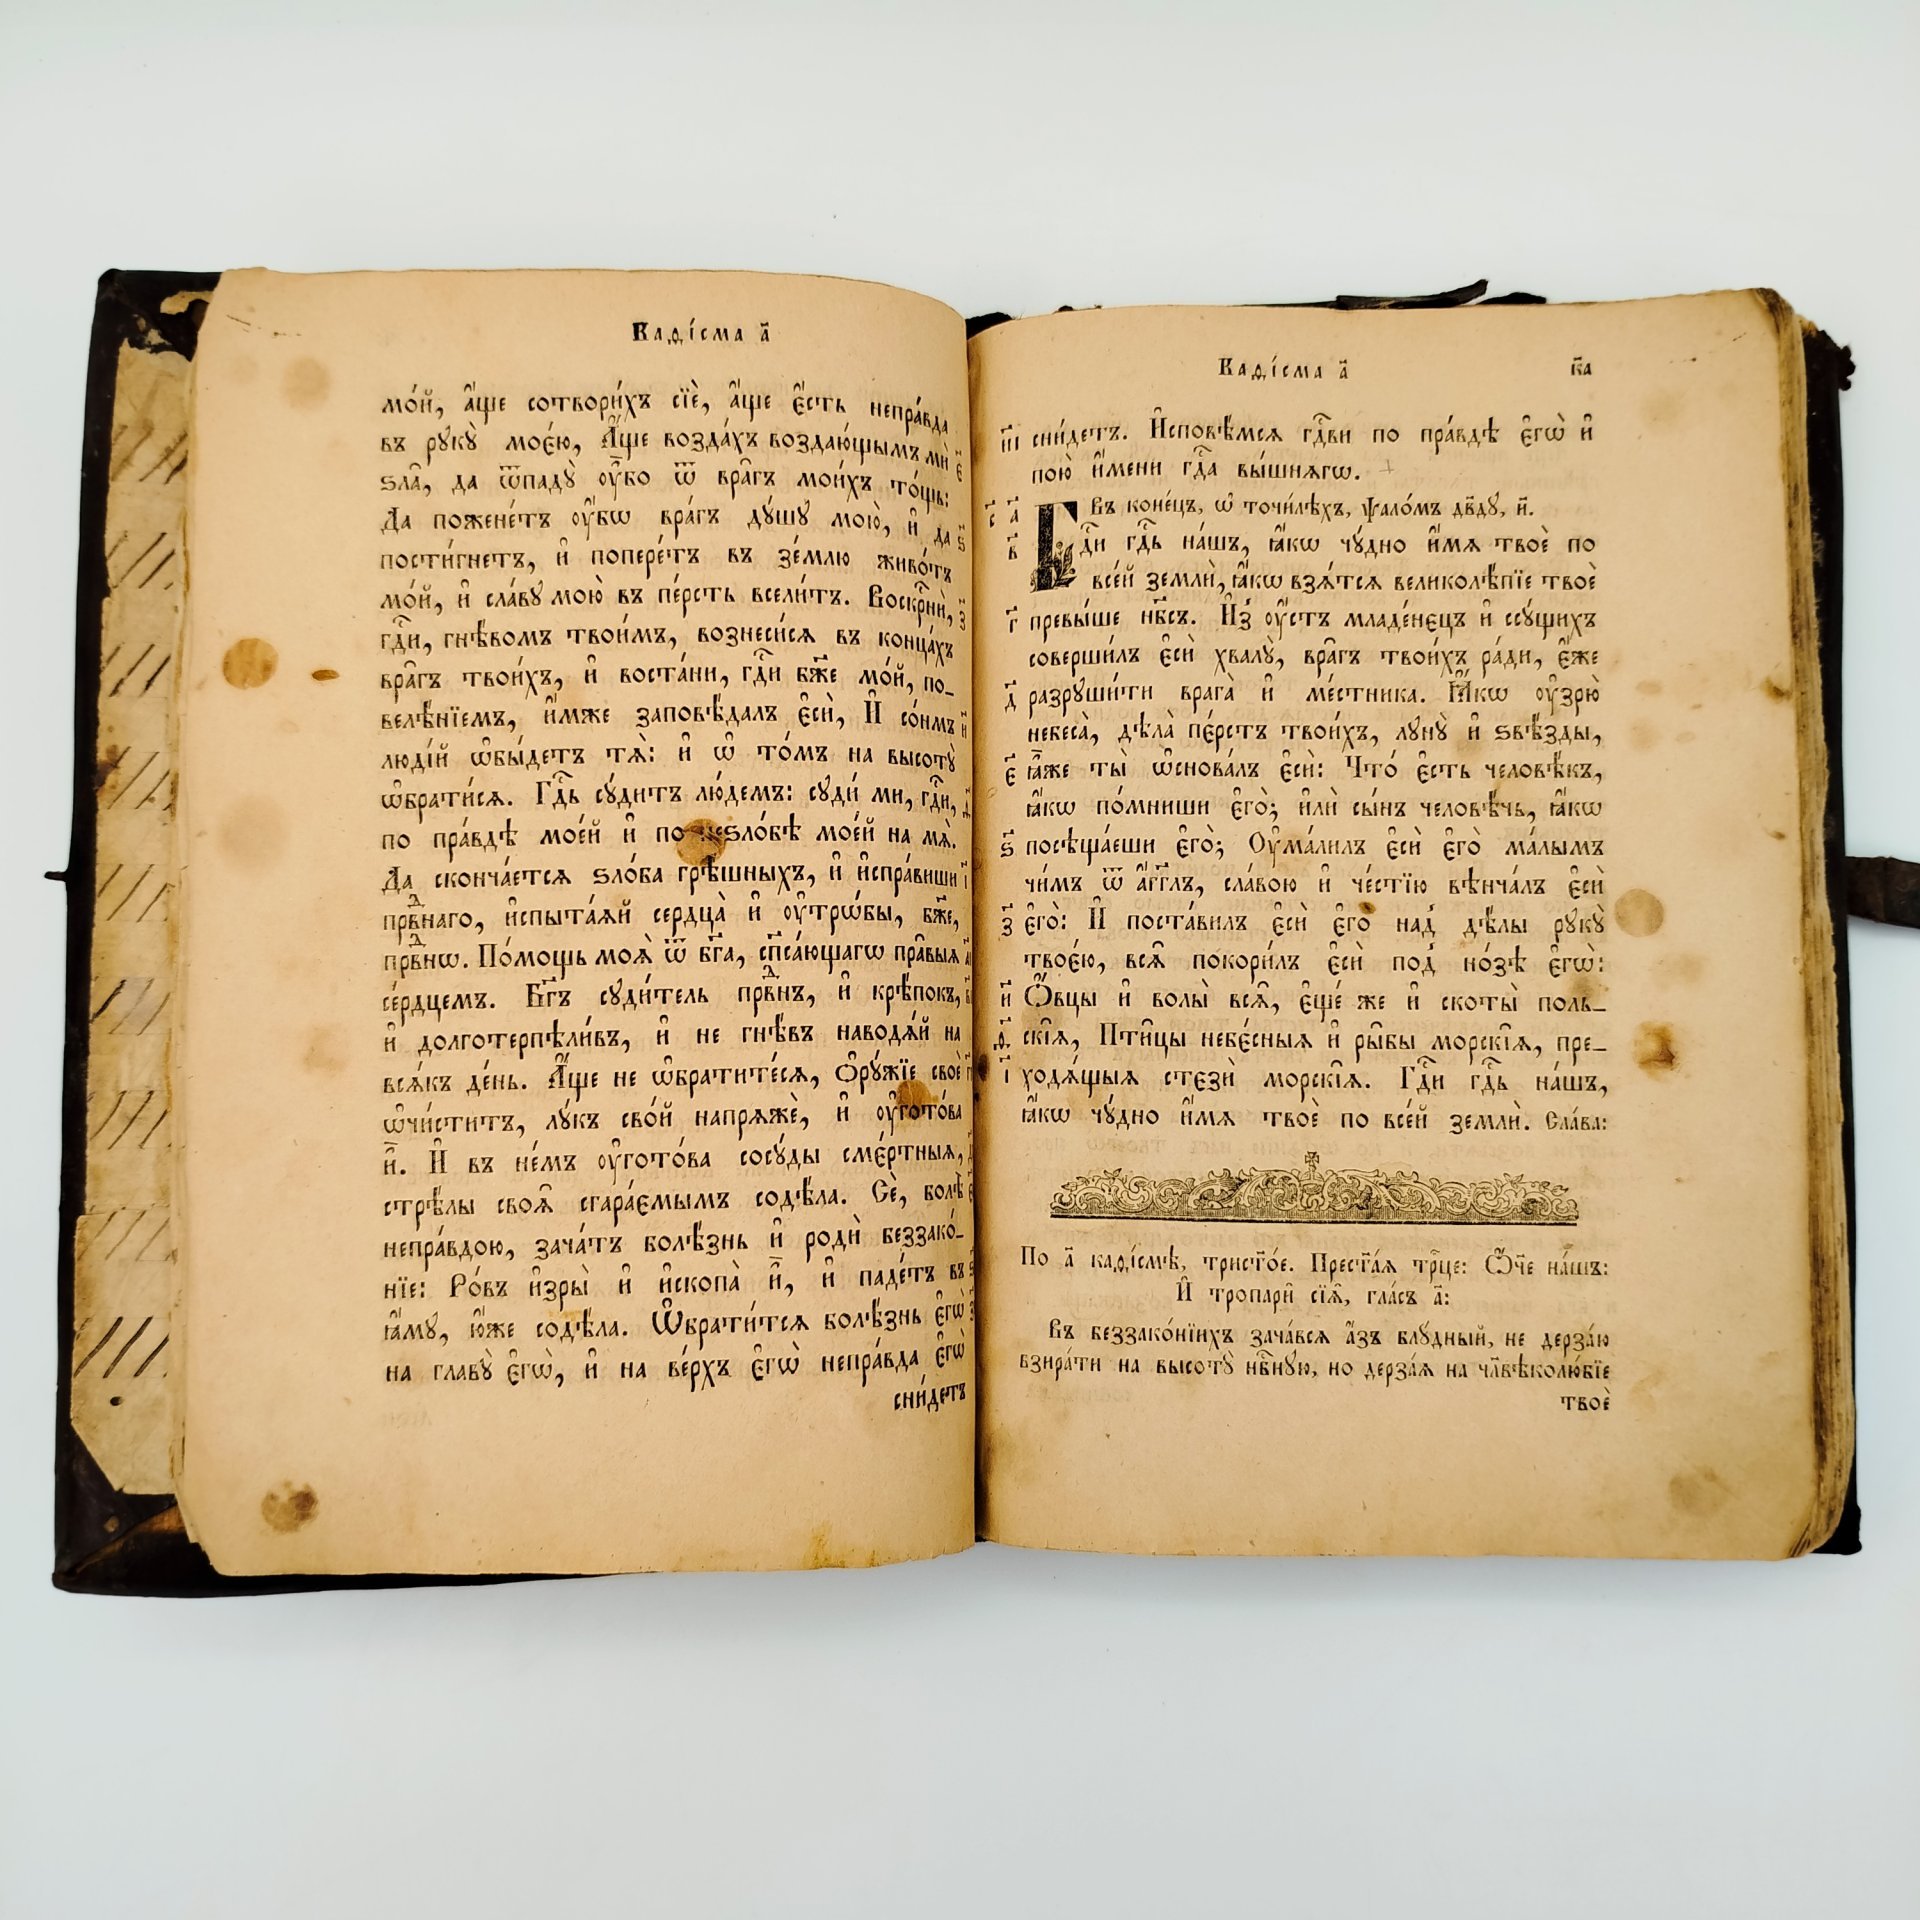 Каѳі́сма а҃
мо́й, а҆́ще сотвори́хъ сїѐ, а҆́ще є҆́сть непра́вда
въ рꙋкꙋ̀ моє́ю, А҆́ще возда́хъ воздаю́щымъ мѝ
ѕла̑, да ѿпадꙋ̀ ᲂу҆̀бо ѿ вра̑гъ мои́хъ то́щь:
Да пожене́тъ ᲂу҆́бѡ вра́гъ дꙋ́шꙋ мою̀, и҆ да
пости́гнетъ, и҆ попере́тъ въ зе́млю живо́тъ
мо́й, и҆ сла́вꙋ мою̀ въ пе́рсть всели́тъ. Воскр҃нѝ,
гд҇и, гнѣ́вомъ твои́мъ, вознеси́сѧ въ конца́хъ
вра̑гъ твои́хъ, и҆ воста́ни, гд҇и бж҃е мо́й, по_
велѣ́нїемъ, и҆́мже заповѣ́далъ є҆сѝ, И҆ со́нмъ
людїй ѡ҆бы́детъ тѧ̀: и҆ ѡ҆ то́мъ на высотꙋ̀
ѡ҆брати́сѧ. Гд҇ь сꙋ́дитъ лю́демъ: сꙋди́ ми, гд҇и,
по пра́вдѣ мое́й и҆ по неѕло́бѣ мое́й на мѧ̀.
Да сконча́етсѧ ѕло́ба грѣ́шныхъ, и҆ и҆спра́виши
прв́днаго, и҆спыта́ѧй сердца̀ и҆ ᲂу҆трѡ́бы, бж҃е,
прв́днѡ. По́мощь моѧ̀ ѿ бг҃а, сп҃са́ющагѡ пра̑выѧ
се́рдцемъ. Бг҃ъ сꙋди́тель прв́днъ, и҆ крѣ́покъ,
и҆ долготерпѣли́въ, и҆ не гнѣ́въ наводѧ́й на
всѧ́къ де́нь. А҆́ще не ѡ҆братите́сѧ, ѻ҆рꙋ́жїе своѐ
ѡ҆чи́ститъ, лꙋ́къ сво́й напрѧжѐ, и҆ ᲂу҆гото́ва
и҆̀. И҆ въ не́мъ ᲂу҆гото́ва сосꙋ́ды сме́ртныѧ,
стрѣ́лы своѧ̑ сгара́ємымъ содѣ́ла. Сѐ, болѣ̀
непра́вдою, зача́тъ болѣ́знь и҆ родѝ беззако́_
нїе: Ро́въ и҆зры̀ и҆ и҆скопа̀ и҆̀, и҆ паде́тъ въ
ꙗ҆́мꙋ, ю҆́же содѣ́ла. Ѡ҆брати́тсѧ болѣ́знь є҆гѡ̀
на главꙋ̀ є҆гѡ̀, и҆ на ве́рхъ є҆гѡ̀ непра́вда є҆гѡ̀
сни́детъ
Каѳі́сма а҃ к҃а
и҃і сни́детъ. И҆сповѣ́мсѧ гд҇ви по пра́вдѣ є҆гѡ̀ и҆
пою̀ и҆́мени гд҇а вы́шнѧгѡ.
а҃ Въ коне́цъ, ѡ҆ точи́лѣхъ, ѱало́мъ дв҃дꙋ, и҃.
в҃ Гд҇и гд҇ь на́шъ, ꙗ҆́кѡ чꙋ́дно и҆́мѧ твоѐ по
все́й землѝ, ꙗ҆́кѡ взѧ́тсѧ великолѣ́пїе твоѐ
г҃ превы́ше нб҃съ. И҆з̾ ᲂу҆́стъ младе́нєцъ и҆ ссꙋ́щихъ
соверши́лъ є҆сѝ хвалꙋ̀, вра̑гъ твои́хъ ра́ди, є҆́же
д҃ разрꙋши́ти врага̀ и҆ ме́стника. Ꙗ҆́кѡ ᲂу҆зрю̀
небеса̀, дѣла̀ пе́рстъ твои́хъ, лꙋнꙋ̀ и҆ ѕвѣ́зды,
є҃ ꙗ҆̀же ты̀ ѡ҆снова́лъ є҆сѝ: Что́ є҆сть человѣ́къ,
ꙗ҆́кѡ по́мниши є҆го̀; и҆лѝ сы́нъ человѣ́чь, ꙗ҆́кѡ
ѕ҃ посѣща́еши є҆го̀; Оу҆ма́лилъ є҆сѝ є҆го̀ ма́лымъ
чи́мъ ѿ а҆́гг҃лъ, сла́вою и҆ че́стїю вѣнча́лъ є҆сѝ
з҃ є҆го̀: И҆ поста́вилъ є҆сѝ є҆го̀ над̾ дѣ́лы рꙋкꙋ̀
твоє́ю, всѧ̑ покори́лъ є҆сѝ под̾ но́зѣ є҆гѡ̀:
и҃ Ѻ҆́вцы и҆ волы̀ всѧ̑, є҆ще́ же и҆ скоты̀ поль_
ѳ҃ скі̑ѧ, Пти̑цы небє́сныѧ и҆ ры̑бы морскі̑ѧ, пре_
і҃ ходѧ́щыѧ стєзѝ морскі̑ѧ. Гд҇и гд҇ь на́шъ,
ꙗ҆́кѡ чꙋ́дно и҆́мѧ твоѐ по все́й землѝ. Сла́ва:
По а҃ каѳі́смѣ, трист҃о́е. Прест҃а́ѧ трⷪ҇це: Ѻ҆́ч҃е на́шъ:
И҆ тропари̑ сїѧ̑, гла́съ а҃:
Въ беззако́нїихъ зача́всѧ а҆́зъ блꙋ́дный, не дерза́ю
взира́ти на высотꙋ̀ нб҃нꙋю, но дерза́ѧ на чл҃вѣколю́бїе
твоѐ